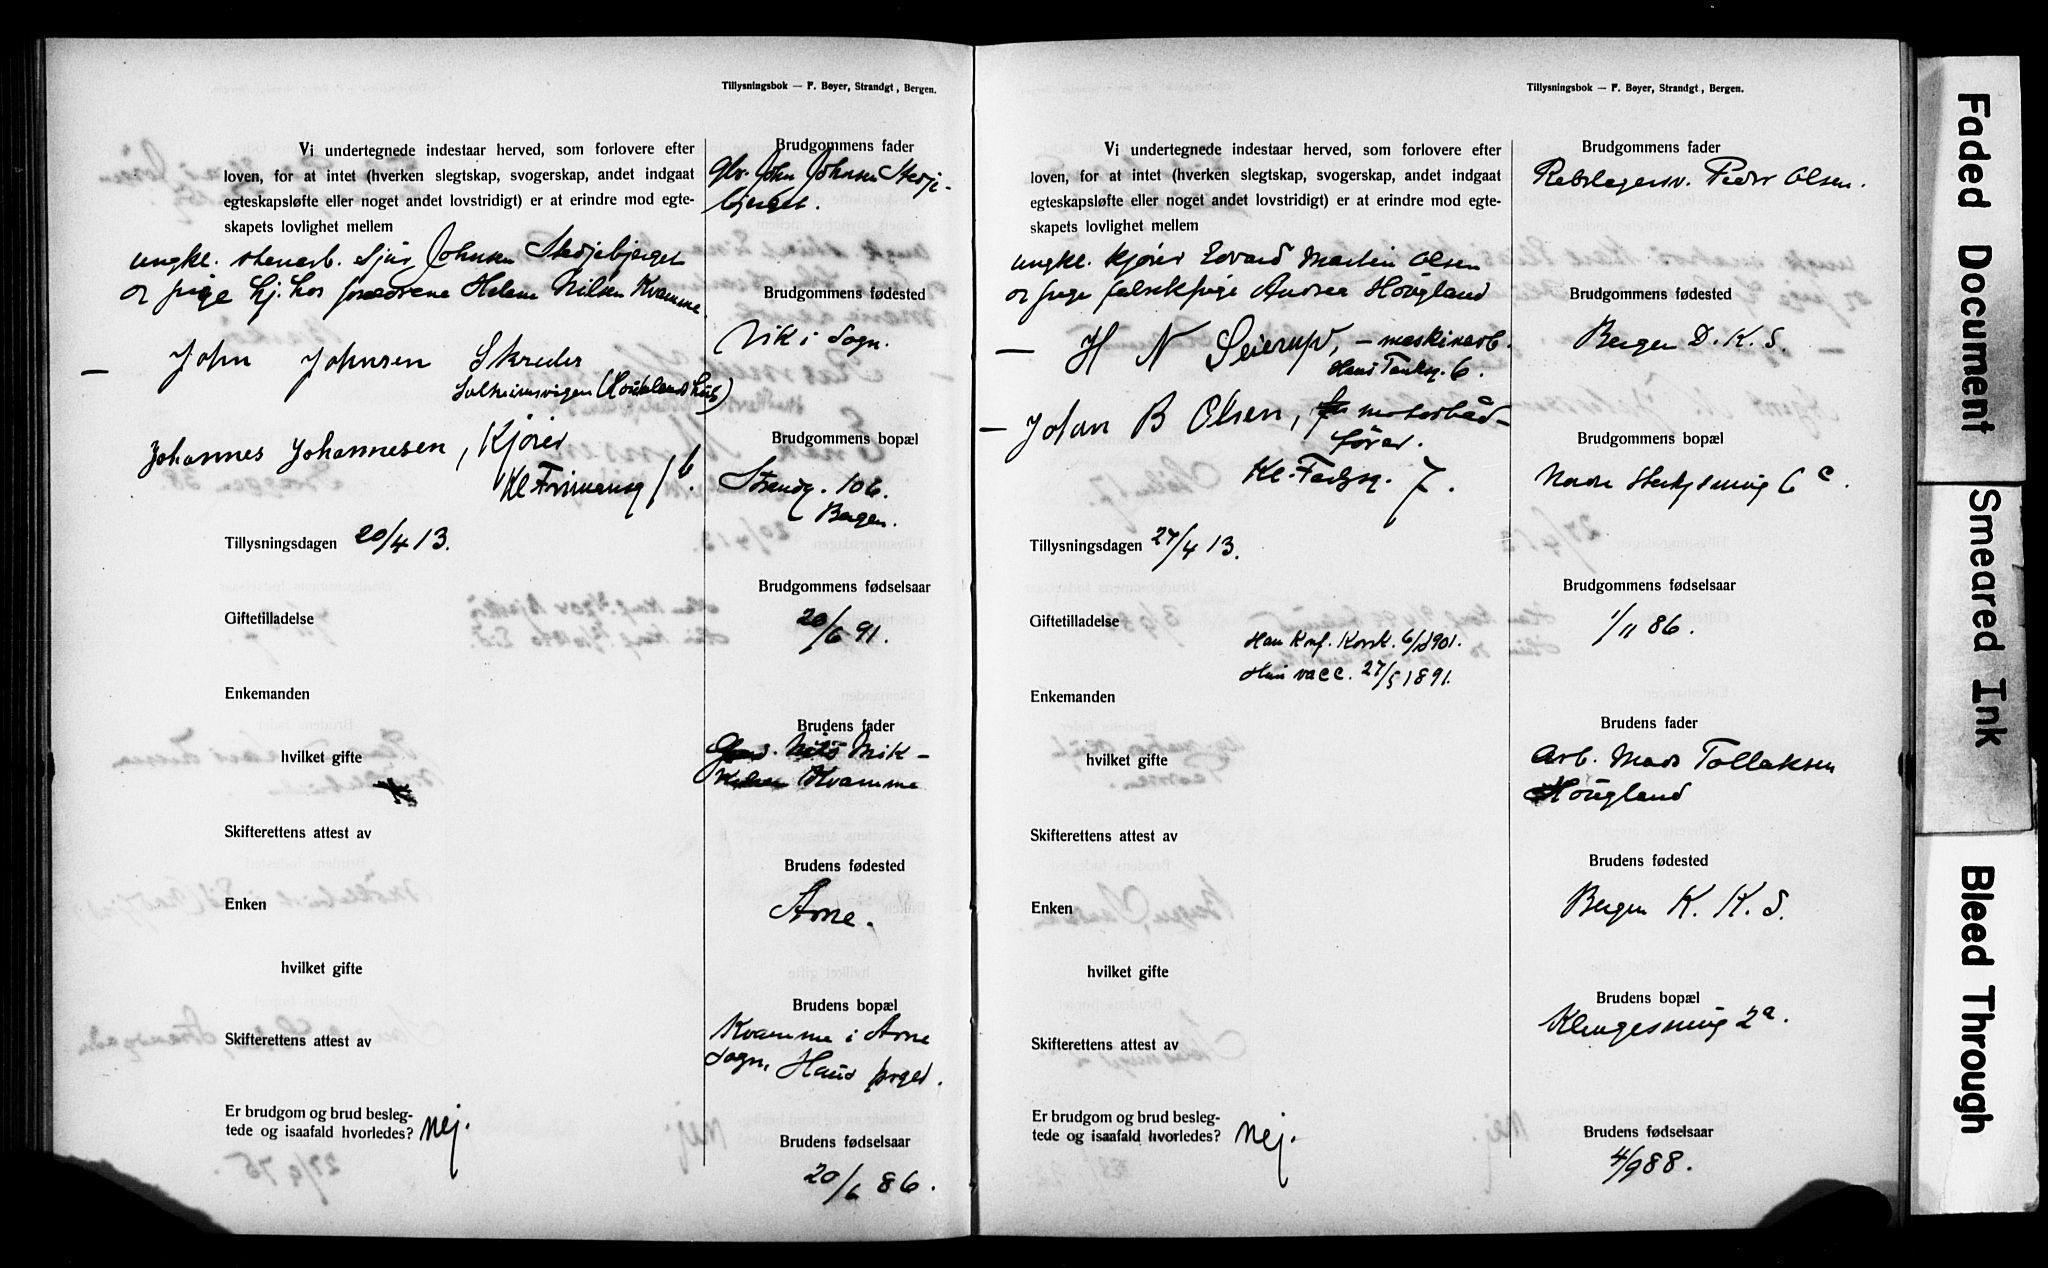 Tillysningsbok — F. Bøyer, Strandgt, Bergen.
Vi undertegnede indestaar herved, som forlovere efter
loven, for at intet (hverken slegtskap, svogerskap, andet indgaat
egteskapsløfte eller noget andet lovstridigt) er at erindre mod egte-
skapets lovlighet mellem
ungkl. stenarb. Sjur Johnsen Stedjebjerget
og pige hj. hos forældrene Helene Nilsen Kvamme.
— John Johnsen Skreder
Solheimsvigen
Johannes Johannesen, Kjører
Tillysningsdagen 20/4 13.
Giftetilladelse
Enkemanden
hvilket gifte
Skifterettens attest av
Enken
hvilket gifte
Skifterettens attest av
Er brudgom og brud besleg-
tede og isaafald hvorledes? Nej.
Brudgommens fader
Gbr. John Johnsen Stedje-
bjerget.
Brudgommens fødested
Vik i Sogn.
Brudgommens bopæl
Strandg. 106.
Bergen.
Brudgommens fødselsaar
20/6 91.
Brudens fader
Nils Mik-
Kvamme
Brudens fødested
Arne.
Brudens bopæl
Kvamme i Arne
Sogn, Haus prgld.
Brudens fødselsaar
20/6 86.
Tillysningsbok — F. Bøyer, Strandgt, Bergen.
Vi undertegnede indestaar herved, som forlovere efter
loven, for at intet (hverken slegtskap, svogerskap, andet indgaat
egteskapsløfte eller noget andet lovstridigt) er at erindre mod egte-
skapets lovlighet mellem
ungkl. kjører Edvard Martin Olsen
og pige fabrikpige Andrea Hougland
— H N Seierup, — maskinarb.
Hans Tanksg. 6.
— Johan B Olsen, motorbåd-
fører.
Kl. 7.
Tillysningsdagen 27/4 13.
Giftetilladelse
Han konf. Korsk. 6/10 1901.
Hun vacc. 27/5 1891.
Enkemanden
hvilket gifte
Skifterettens attest av
Enken
hvilket gifte
Skifterettens attest av
Er brudgom og brud besleg-
tede og isaafald hvorledes? Nej.
Brudgommens fader
Rebslagersv. Peder Olsen.
Brudgommens fødested
Bergen D. K. S.
Brudgommens bopæl
Nordre 6 c.
Brudgommens fødselsaar
1/11 86.
Brudens fader
Arb. Mads Tollaksen
Hougland
Brudens fødested
Bergen K. K. S.
Brudens bopæl
Klingesmug 2a.
Brudens fødselsaar
4/9 88.
Faded Document
Smeared Ink
Bleed Through